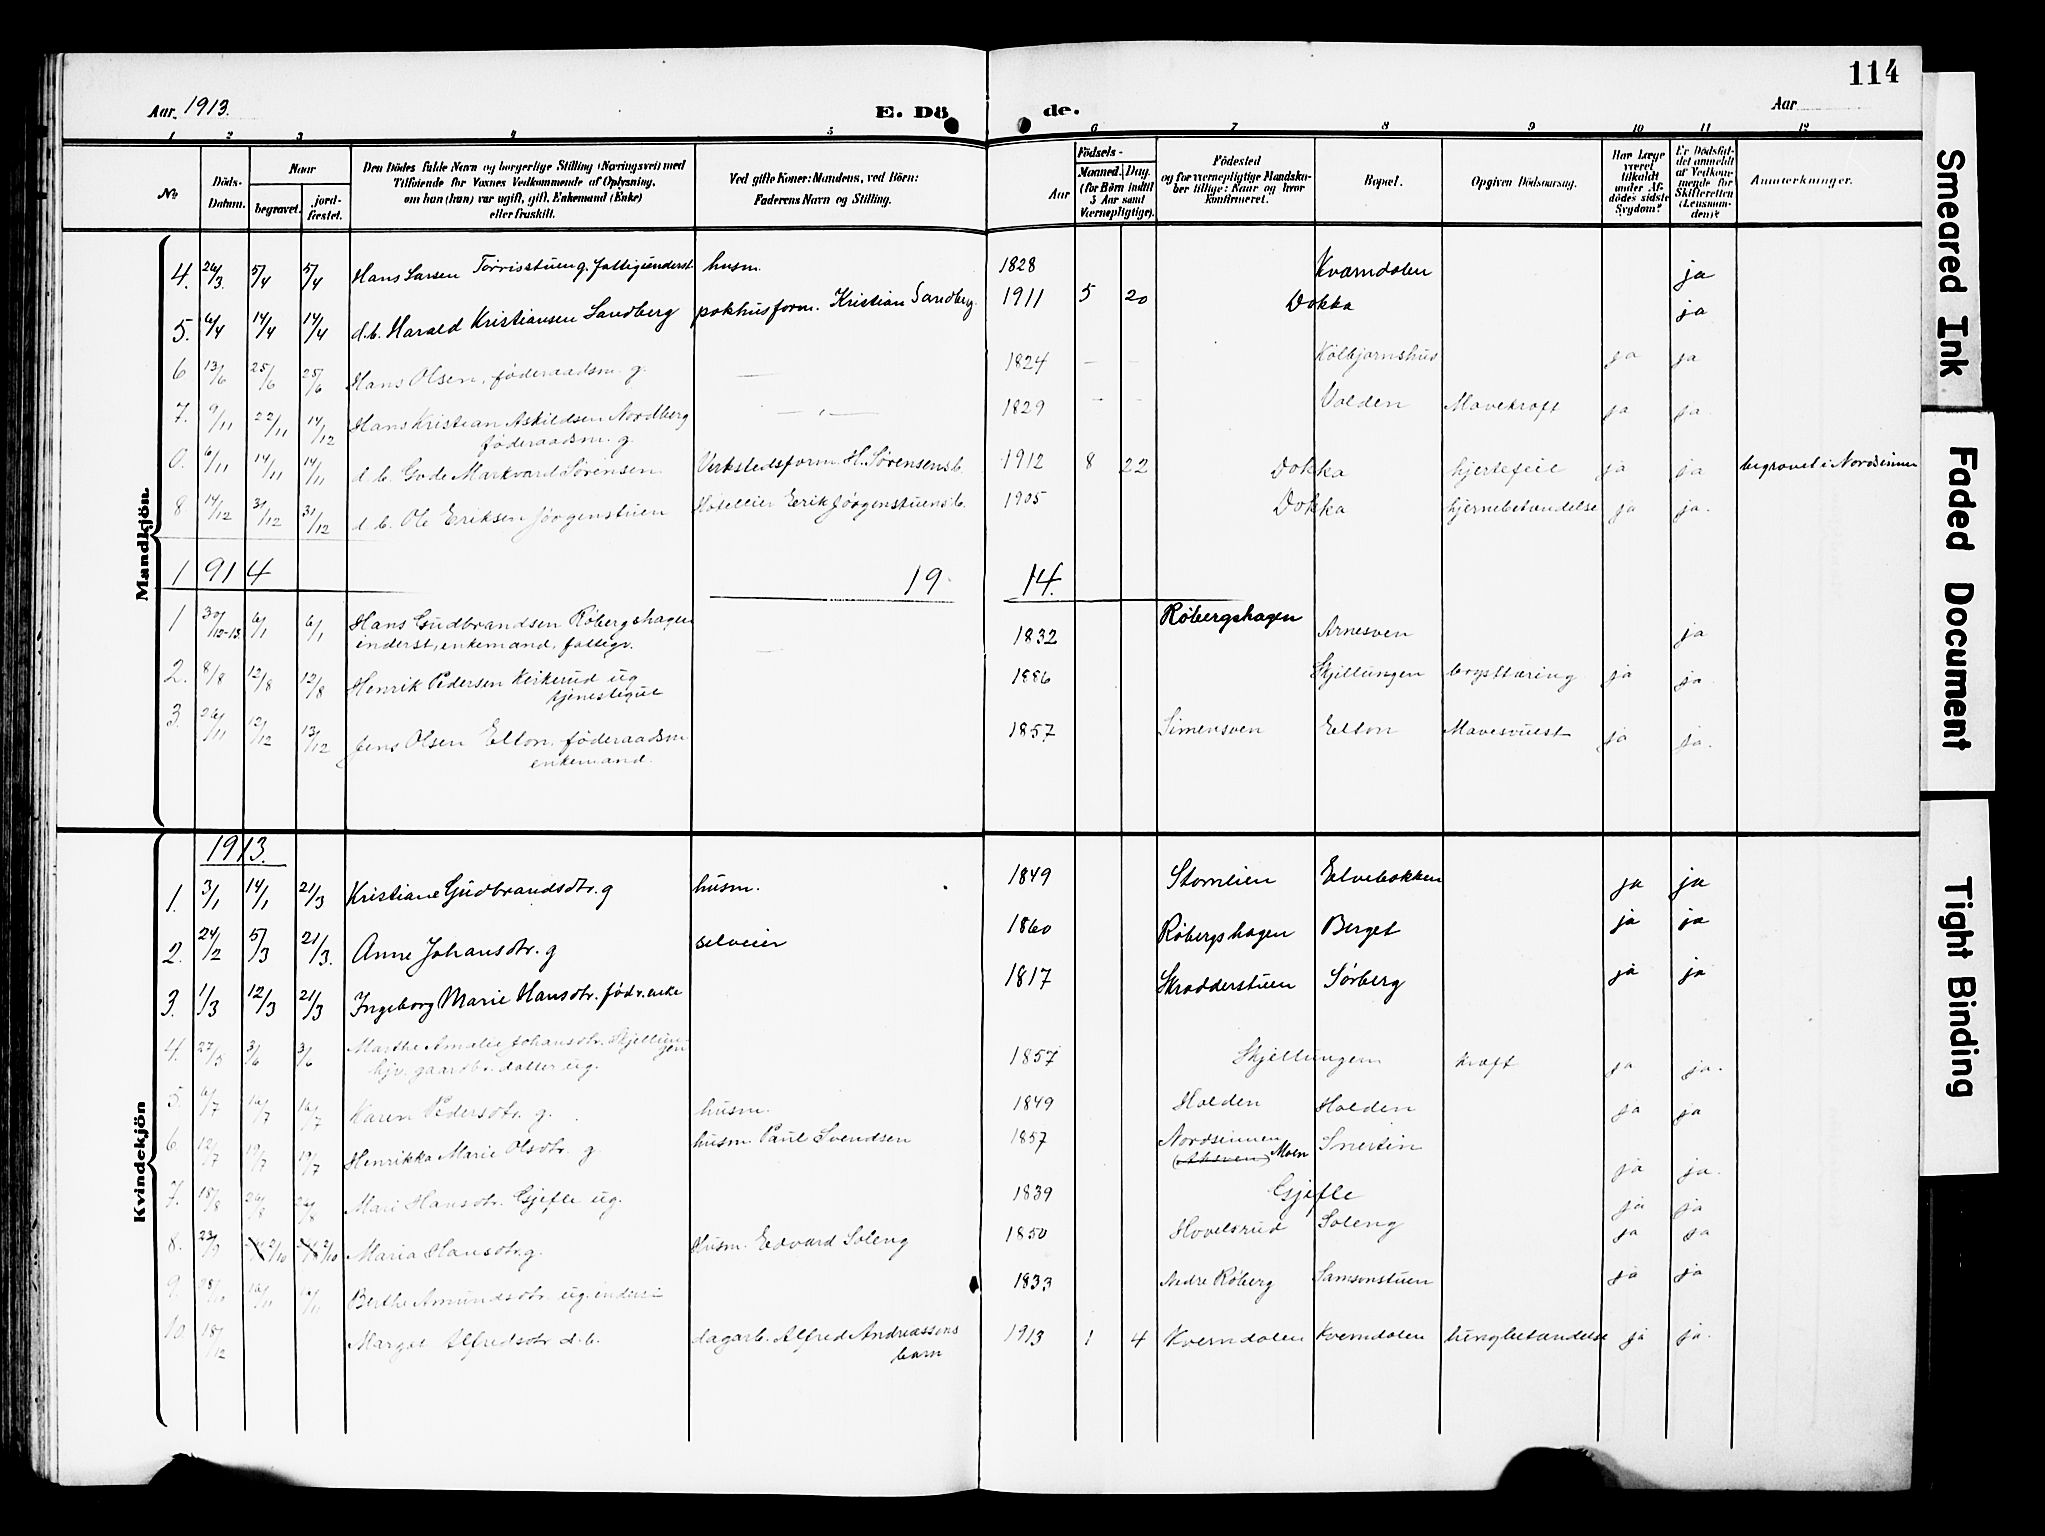 114
Aar 1913.
E. Dö de.
Aar
1 2 3 4 5 6 7 8 9 10 11 12
No
Döds-Datum.
Naar
begravet.
jord-fæstet.
Den Dödes fulde Navn og borgerlige Stilling (Næringsvei) med
Tilföiende for Voxnes Vedkommende af Oplysning,
om han (hun) var ugift, gift, Enkemand (Enke)
eller fraskilt.
Ved gifte Koner: Mandens, ved Börn:
Faderens Navn og Stilling.
Födsels-
Aar
Maaned. Dag.
(for Børn indtil
5 Aar samt
Værnepligtige).
Födested
og for værnepligtige Mandska-
ber tillige: Naar og hvor
konfirmeret.
Bopæl.
Opgiven Dödsaarsag.
Har Læge
været
tilkaldt
under Af-
dödes sidste
Sygdom?
Er Dödsfal-
det anmeldt
af Vedkom-
mende for
Skifteretten
(Lensman-
den)?
Anmærkninger.
Mandkjön.
4. 26/3. 5/4 5/4 Hans Larsen Torrisstuen g. fattigunderst. husm. 1828 Kværndalen ja
5. 6/4 14/4 14/4 d.b. Harald Kristiansen Sandberg pakhusform. Kristian Sandberg. 1911 5 20 Dokka ja
6 13/6 25/6 25/6 Hans Olsen, føderaadsm. g. — 1824 — — Kolbjørnshus ja ja
7. 9/11 22/11 14/12 Hans Kristian Askildsen Nordberg — 1829 — — Valden Mavekræft ja ja.
føderaadsm. g.
0. 6/11 14/11 14/11 d.b. Gode Markvard Sørensen Verkstedsform. H. Sørensens b. 1912 8 22 Dokka hjertefeil ja ja begravet i Nordsinnen
8 14/12 31/12 31/12 d.b. Ole Eriksen Jørgenstuen Hoteleier Erik Jørgenstuens b. 1905 Dokka hjernebetændelse ja ja.
1914 19 14.
1 30/12-13 6/1 6/1 Hans Gudbrandsen Røbergshagen 1832 Røbergshagen Arnesven ja
inderst, enkemand, fattigv.
2. 8/8 12/8 12/8 Henrik Pedersen Kirkerud ug 1886 Skjellungen brysttæring ja ja.
tjenestegut
3. 26/11 12/12 13/12 Jens Olsen Elton, føderaadsm 1857 Simensven Elton Mavesvulst ja ja.
enkemand.
Kvindekjön
1913.
1. 3/1 14/1 21/3 Kristiane Gudbrandsdtr. g husm. 1849 Stomlien Elvebakken ja ja
2. 24/2 5/3 21/3. Anne Johansdtr. g selveier 1860 Røbergshagen Berget ja ja
3. 1/3 12/3 21/3 Ingeborg Marie Hansdtr. fødr. enke 1817 Skrædderstuen Sørberg ja ja
4. 27/5 3/6 3/6 Marthe Amalie Johansdtr. Skjellungen 1857 Skjellungen kræft ja ja.
hjv. gaardbr. datter ug.
5. 6/7 16/7 16/7 Karen Pedersdtr. g. husm. 1849 Halden Halden ja ja
6. 12/7 19/7 19/7 Henrikka Marie Olsdtr. g husm. Paul Svendsen 1857 Nordsinnen Moen Snertin ja ja.
7. 18/8 26/8 26/8 Mari Hansdtr. Gjefle ug. 1839 Gjefle ja ja
8. 23/9 2/10 2/10 Maria Hansdtr. g. Husm. Edvard Soleng 1850 Hovelsrud Soleng ja ja
9. 28/10 16/11 16/11 Berthe Amundsdtr. ug. inderst 1833 Nedre Røberg Samsonstuen ja ja
10 18/12 Margit Alfredsdtr d.b. dagarb. Alfred Andreassens 1913 1 4 Kværndalen Kværndalen lungebetændelse ja ja.
barn
Smeared Ink
Faded Document
Tight Binding